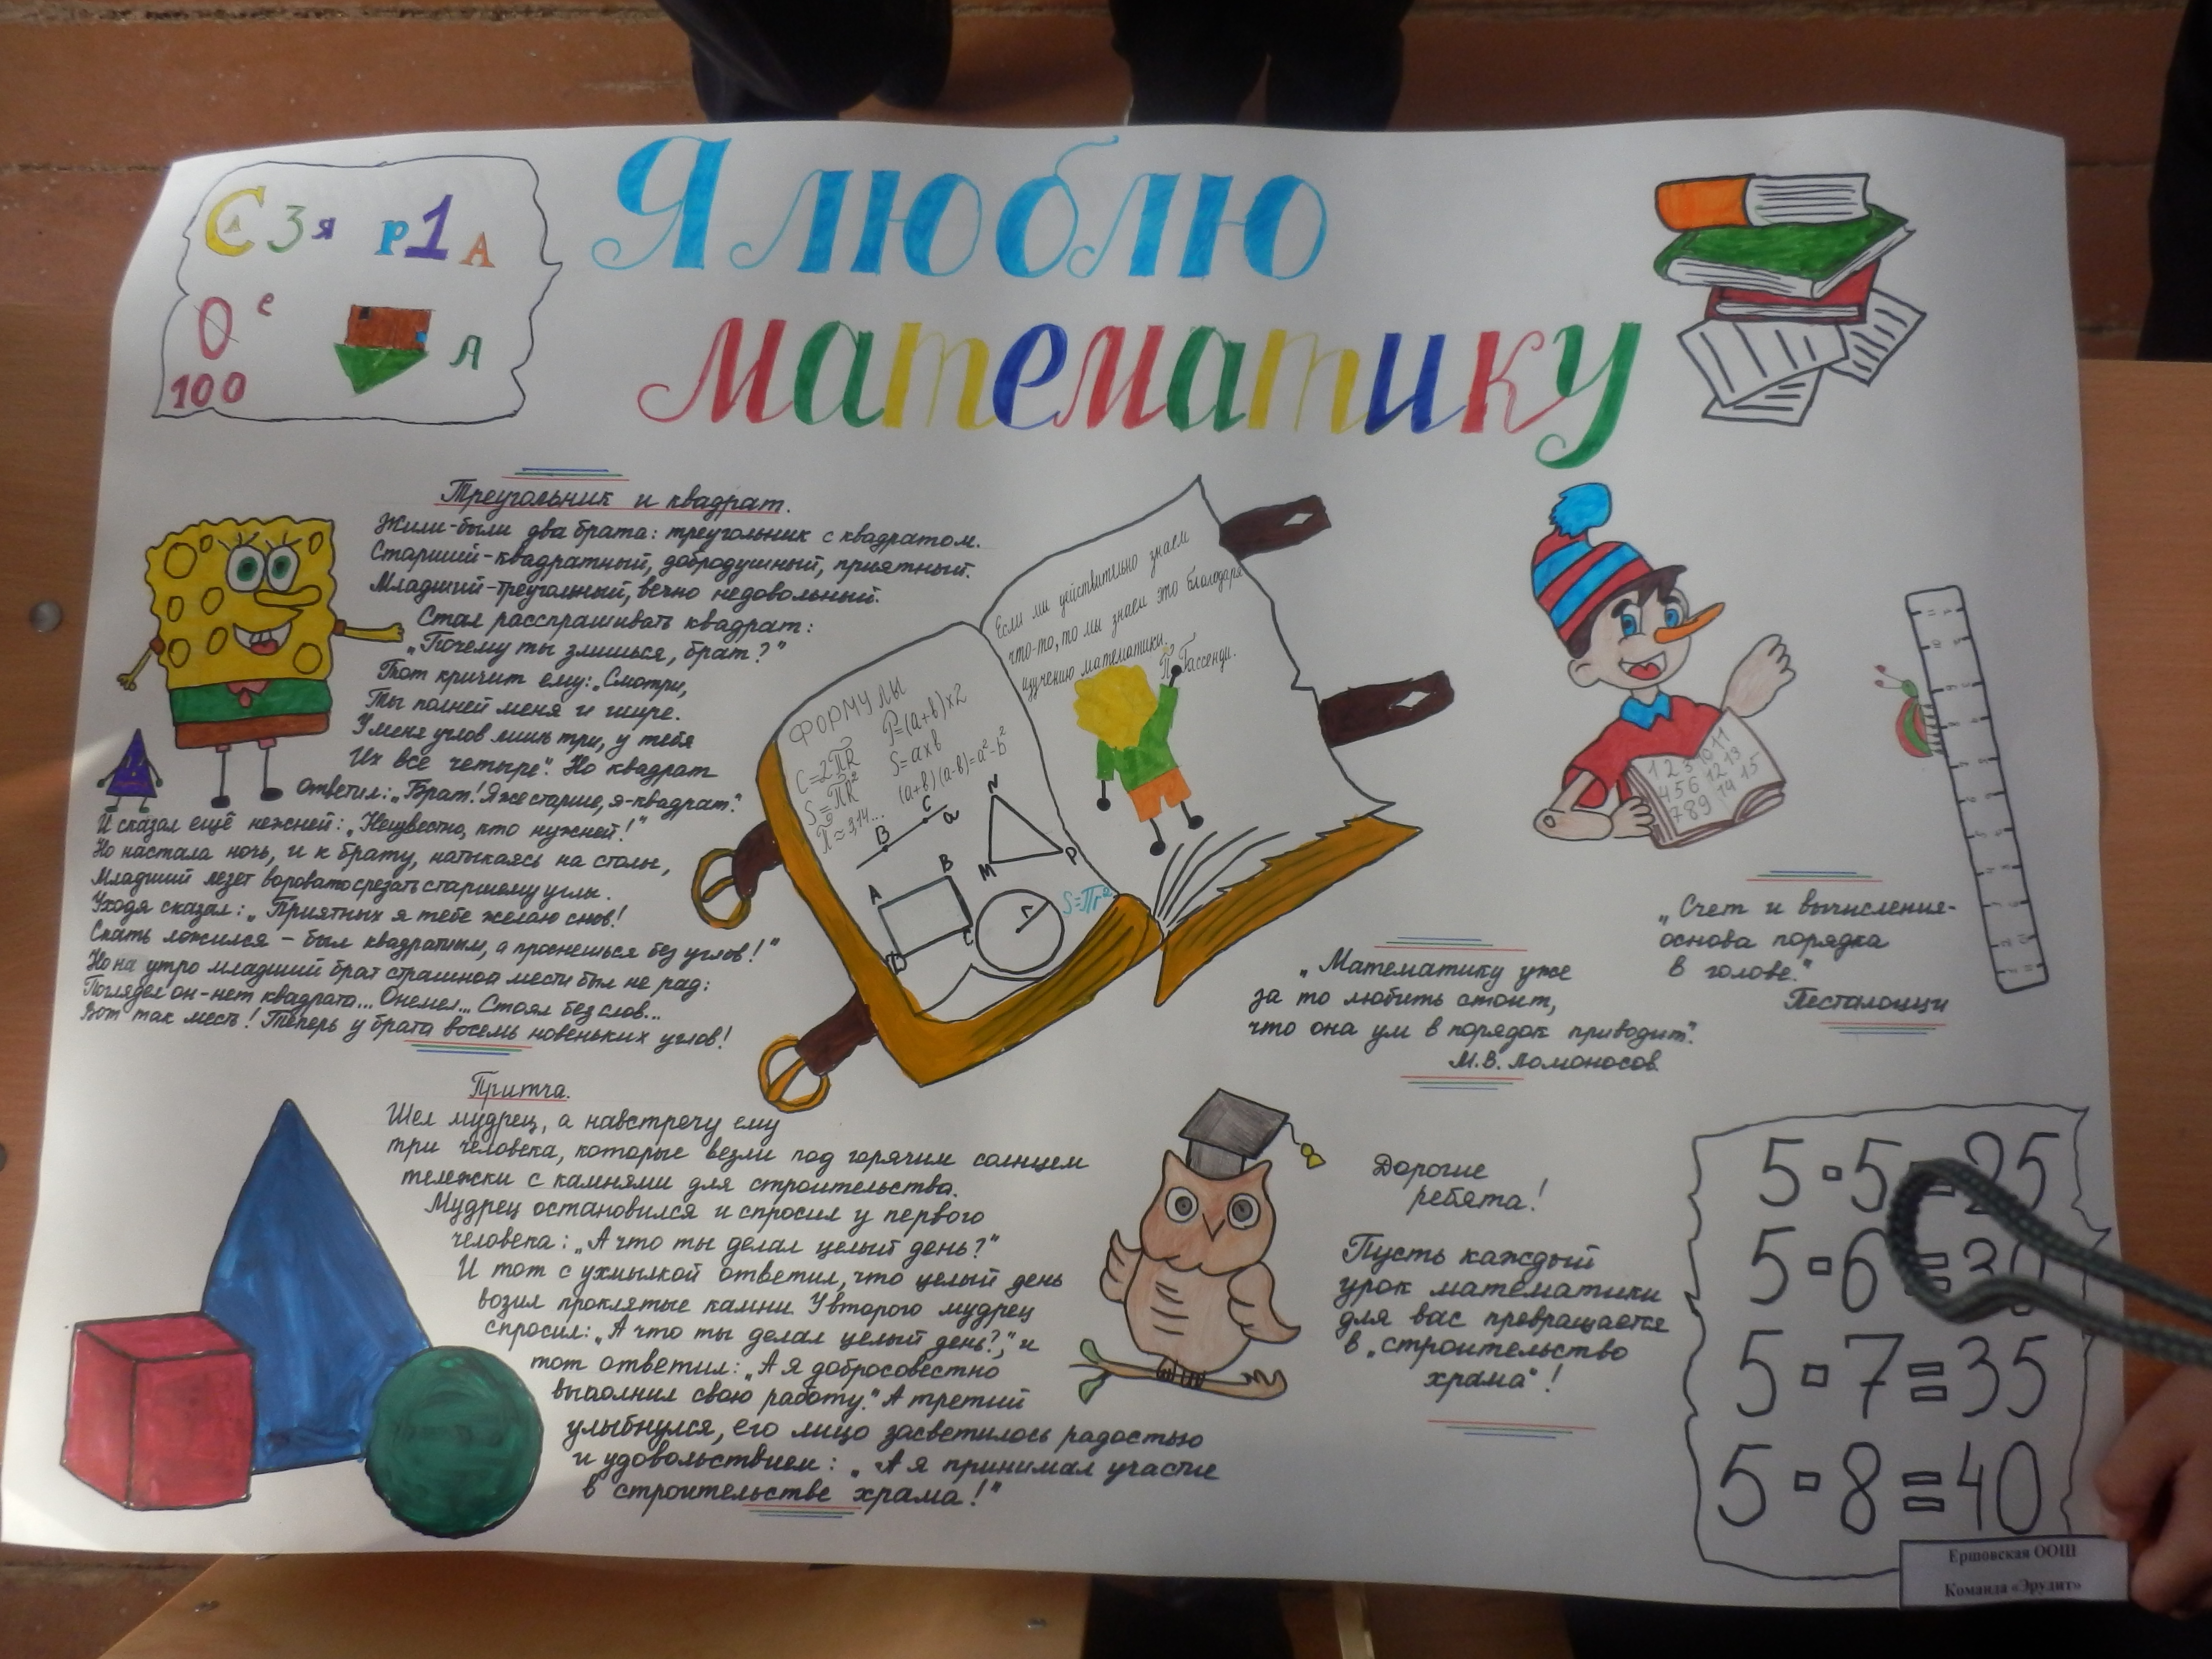 Я люблю
математику
С 3 я р 1 А
0 е
А
100
Треугольник и квадрат.
Жили-были два брата: треугольник с квадратом.
Старший-квадратный, добродушный, приятный.
Младший-треугольный, вечно недовольный.
Стал расспрашивать квадрат:
„Почему ты злишься, брат?"
Тот кричит ему: „Смотри,
Ты полней меня и шире.
У меня углов лишь три, у тебя
Их все четыре". Но квадрат
ответил: „Брат! Я же старше, я-квадрат".
И сказал ещё нежней: „Неизвестно, кто нужней!"
Но настала ночь, и к брату, натыкаясь на столы,
Младший лезет воровато срезать старшему углы.
Уходя сказал: „Приятных я тебе желаю снов!
Спать ложился – был квадратным, а проснешься без углов!"
Но на утро младший брат страшной мести был не рад:
Поглядел он-нет квадрата... Онемел... Стоял без слов...
Вот так месть! Теперь у брата восемь новеньких углов!
ФОРМУЛЫ
C=2ПR P=(a+b)x2
S=ПR² S=axb
П≈3,14... (a+b)(a-b)=a²-b²
B C a
N
M P
A B
D C
r
S=Пr²
Если мы действительно знаем
что-то, то мы знаем это благодаря
изучению математики.
П. Гассенди.
1 2 3 10 11
4 5 6 12 13
7 8 9 14 15
„Счет и вычисления-
основа порядка
в голове."
Песталоцци
„Математику уже
за то любить стоит,
что она ум в порядок приводит".
М.В. Ломоносов
Притча.
Шел мудрец, а навстречу ему
три человека, которые везли под горячим солнцем
тележки с камнями для строительства.
Мудрец остановился и спросил у первого
человека: „А что ты делал целый день?"
И тот с ухмылкой ответил, что целый день
возил проклятые камни. У второго мудрец
спросил: „А что ты делал целый день?", и
тот ответил: „А я добросовестно
выполнил свою работу." А третий
улыбнулся, его лицо засветилось радостью
и удовольствием: „А я принимал участие
в строительстве храма!"
Дорогие
ребята!
Пусть каждый
урок математики
для вас превращается
в „строительство
храма"!
5·5=25
5·6=30
5·7=35
5·8=40
Ершовская ООШ
Команда «Эрудит»